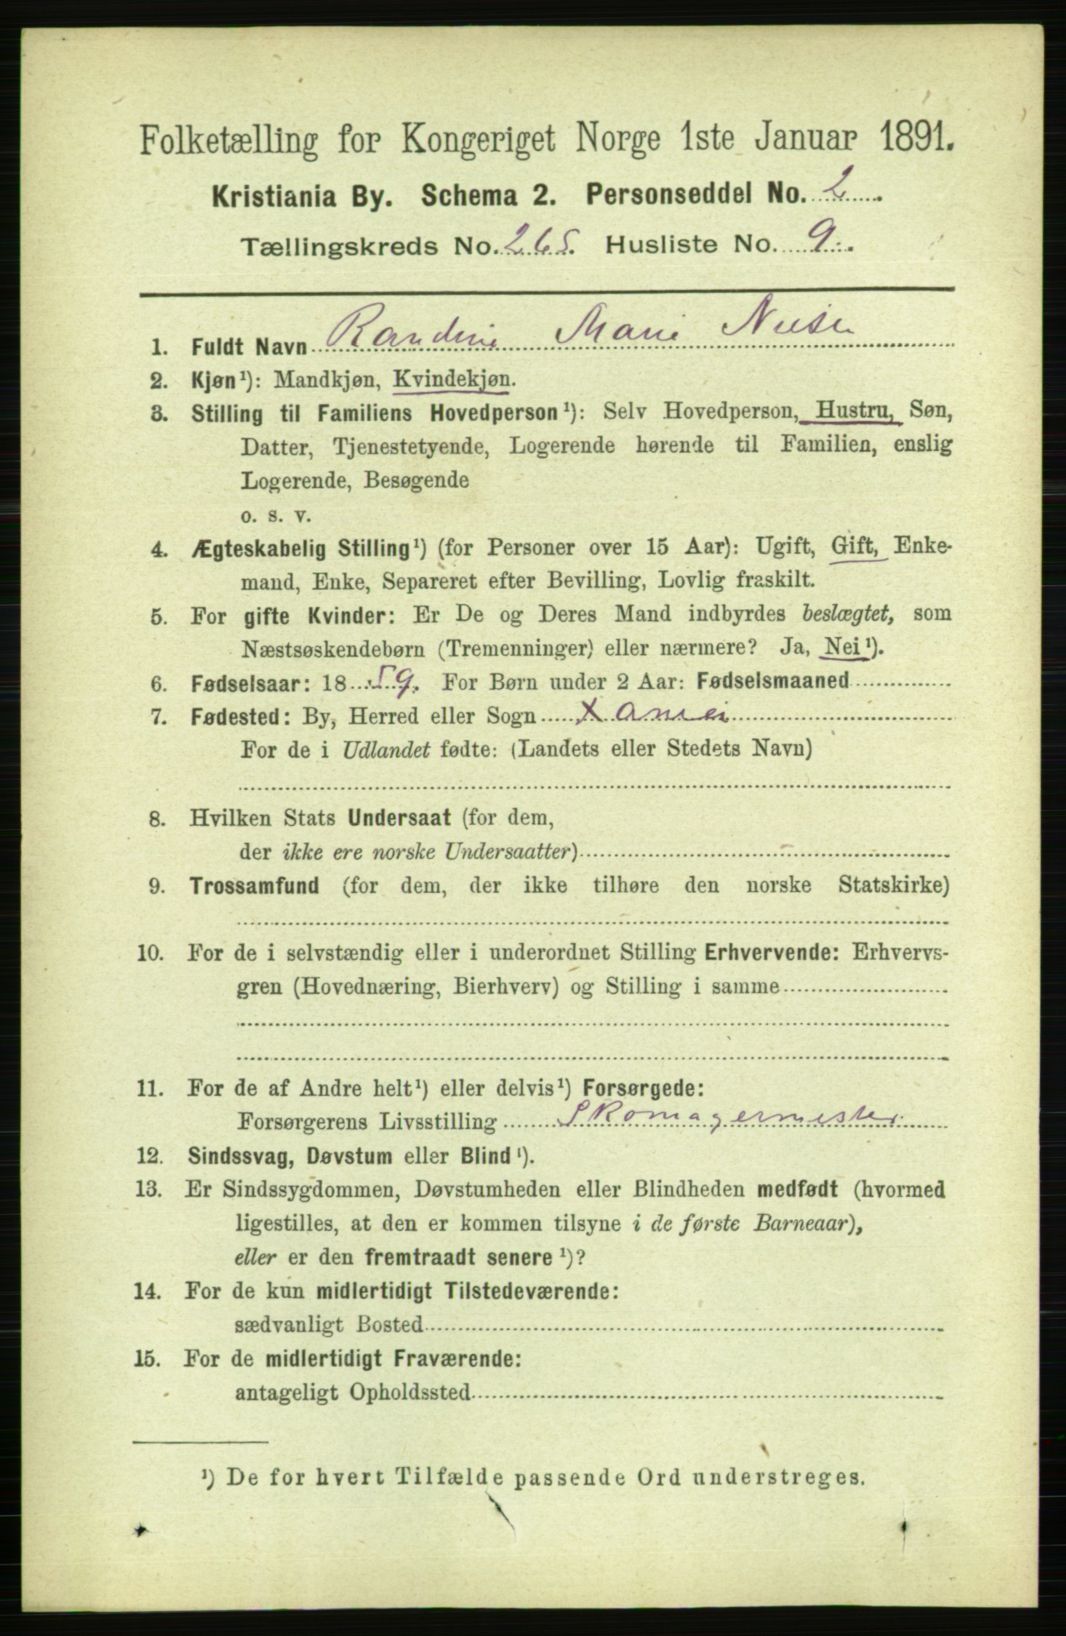 Folketælling for Kongeriget Norge 1ste Januar 1891.
Kristiania By. Schema 2. Personseddel No. 2
Tællingskreds No. 265. Husliste No. 9.
1. Fuldt Navn Randine Marie
2. Kjøn¹): Mandkjøn, Kvindekjøn.
3. Stilling til Familiens Hovedperson¹): Selv Hovedperson, Hustru, Søn,
Datter, Tjenestetyende, Logerende hørende til Familien, enslig
Logerende, Besøgende
o. s. v.
4. Ægteskabelig Stilling¹) (for Personer over 15 Aar): Ugift, Gift, Enke-
mand, Enke, Separeret efter Bevilling, Lovlig fraskilt.
5. For gifte Kvinder: Er De og Deres Mand indbyrdes beslægtet, som
Næstsøskendebørn (Tremenninger) eller nærmere? Ja, Nei¹).
6. Fødselsaar: 18 59. For Børn under 2 Aar: Fødselsmaaned
7. Fødested: By, Herred eller Sogn
For de i Udlandet fødte: (Landets eller Stedets Navn)
8. Hvilken Stats Undersaat (for dem,
der ikke ere norske Undersaatter)
9. Trossamfund (for dem, der ikke tilhøre den norske Statskirke)
10. For de i selvstændig eller i underordnet Stilling Erhvervende: Erhvervs-
gren (Hovednæring, Bierhverv) og Stilling i samme
11. For de af Andre helt¹) eller delvis¹) Forsørgede:
Forsørgerens Livsstilling Skomagermester
12. Sindssvag, Døvstum eller Blind¹).
13. Er Sindssygdommen, Døvstumheden eller Blindheden medfødt (hvormed
ligestilles, at den er kommen tilsyne i de første Barneaar),
eller er den fremtraadt senere¹)?
14. For de kun midlertidigt Tilstedeværende:
sædvanligt Bosted
15. For de midlertidigt Fraværende:
antageligt Opholdssted
¹) De for hvert Tilfælde passende Ord understreges.